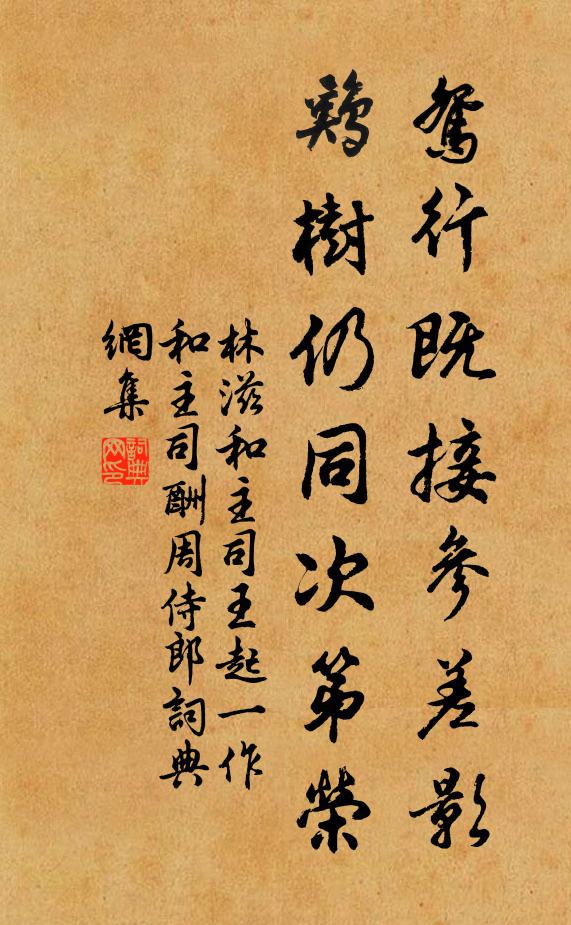 鴛行既接參差影
鷄樹仍同次第榮
林滋和主司王起一作
和主司酬周侍郎詞典
網集
詞典網印